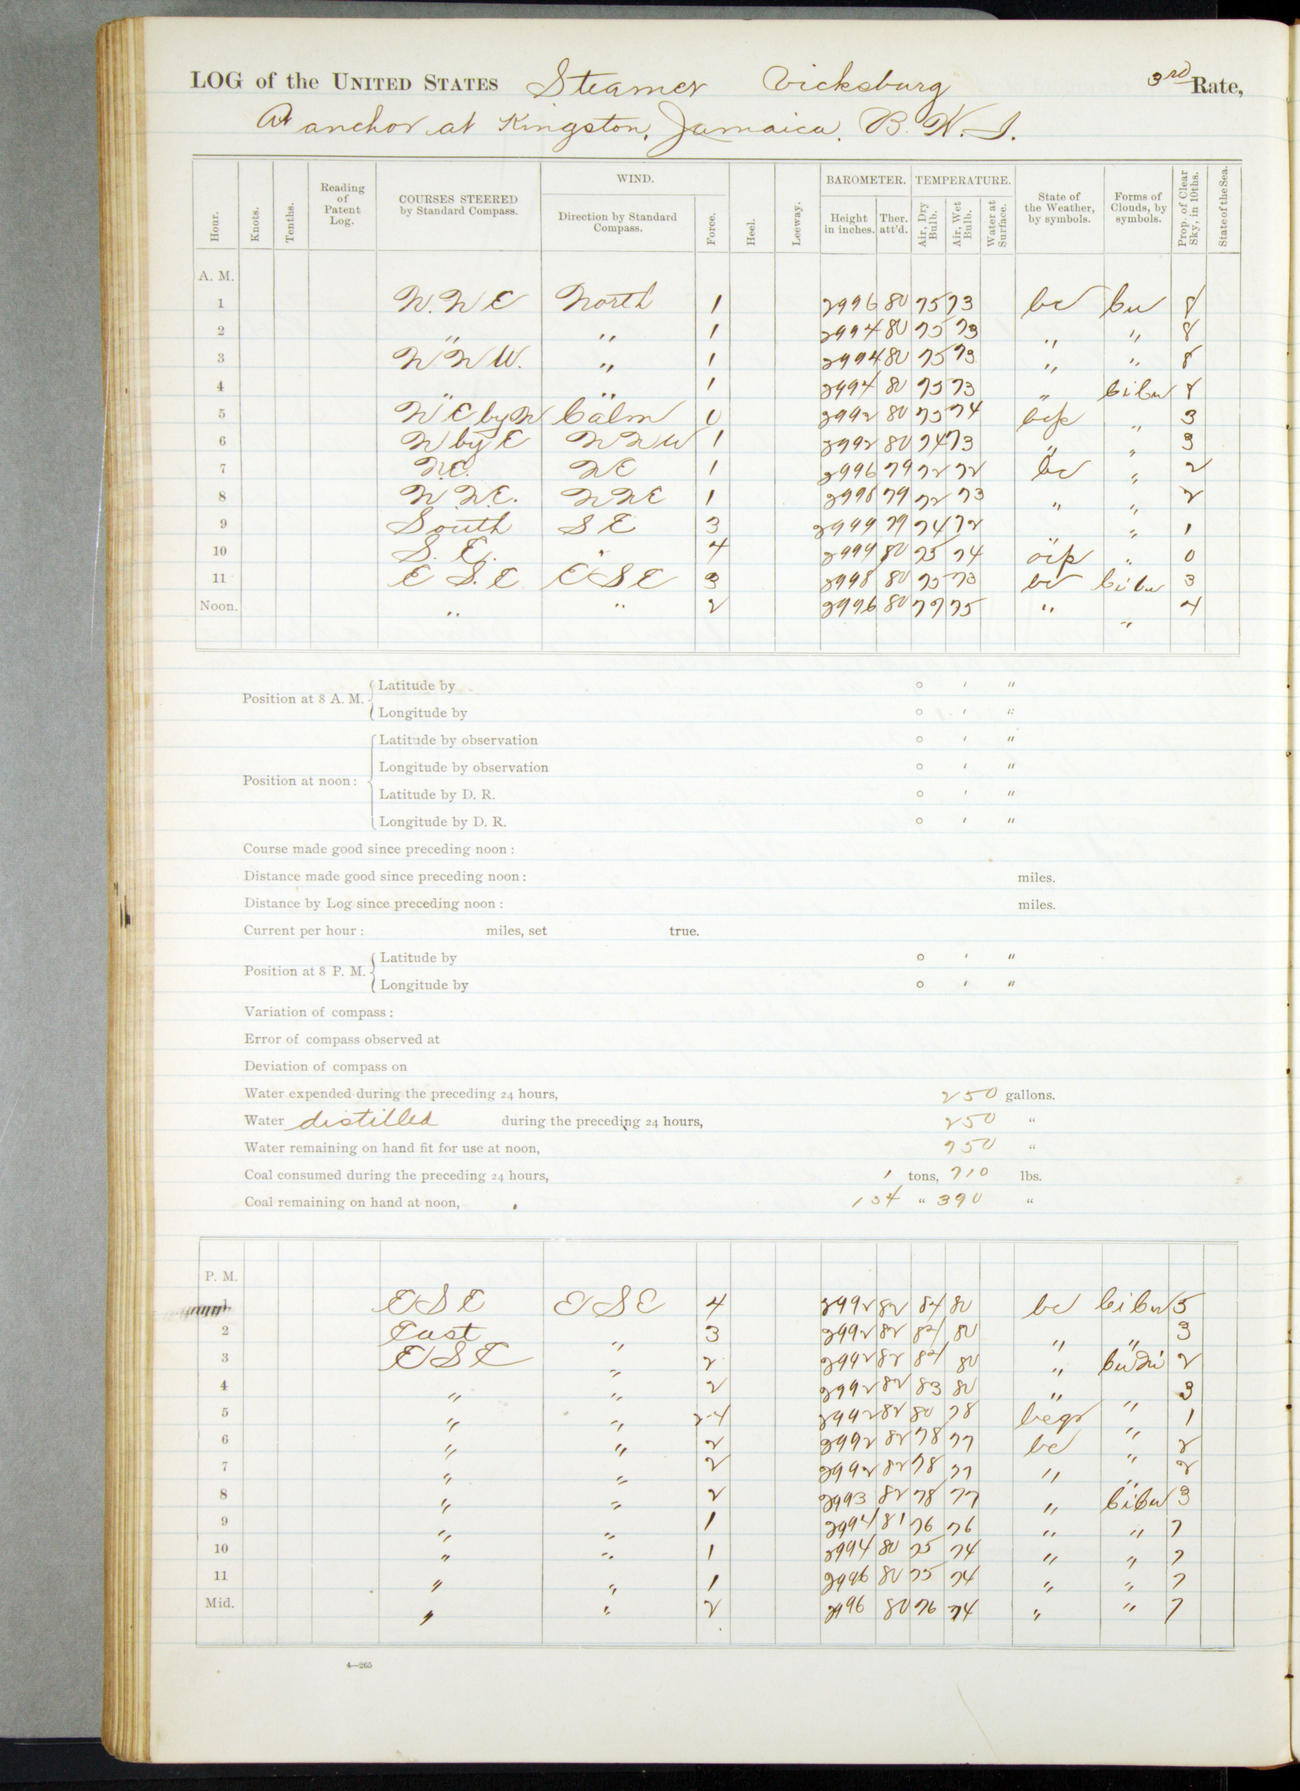 LOG of the UNITED STATES Steamer Vicksburg 3rd Rate,
At anchor at Kingston, Jamaica, B. W. I.
Hour. Knots. Tenths. Reading of Patent Log. COURSES STEERED by Standard Compass. WIND. Direction by Standard Compass. Force. Heel. Leeway. BAROMETER. Height in inches. Ther. att'd. TEMPERATURE. Air, Dry Bulb. Air, Wet Bulb. Water at Surface. State of the Weather, by symbols. Forms of Clouds, by symbols. Prop. of Clear Sky, in 10ths. State of the Sea.
A. M.
1 N.N E North 1 2996 80 75 73 bc Cu 8
2 " " 1 2994 80 75 73 " " 8
3 N N W. " 1 2994 80 75 73 " " 8
4 " " 1 2994 80 75 73 " Ci Cu 8
5 N E by N Calm 0 2992 80 75 74 bcp " 3
6 N by E N N W 1 2992 80 74 73 " " 3
7 N.E. N E 1 2996 79 72 72 bc " 2
8 N N E. N N E 1 2998 79 72 73 " " 2
9 South S E 3 2999 79 74 72 " 1
10 S. E. " 4 2999 80 75 74 ocp " 0
11 E S. E E S E 3 2998 80 75 73 bc Ci Cu 3
Noon. " " 2 2996 80 77 75 " " 4
Position at 8 A. M. Latitude by ° ' "
Longitude by ° ' "
Position at noon: Latitude by observation ° ' "
Longitude by observation ° ' "
Latitude by D. R. ° ' "
Longitude by D. R. ° ' "
Course made good since preceding noon:
Distance made good since preceding noon: miles.
Distance by Log since preceding noon: miles.
Current per hour: miles, set true.
Position at 8 P. M. Latitude by ° ' "
Longitude by ° ' "
Variation of compass:
Error of compass observed at
Deviation of compass on
Water expended during the preceding 24 hours, 250 gallons.
Water distilled during the preceding 24 hours, 250 "
Water remaining on hand fit for use at noon, 950 "
Coal consumed during the preceding 24 hours, 1 tons, 710 lbs.
Coal remaining on hand at noon, 134 " 390 "
P. M.
1 E S E E S E 4 2992 82 84 80 bc Ci Cu 5
2 East " 3 2992 82 84 80 " " 3
3 E S E " 2 2992 82 84 80 " 2
4 " " 2 2992 82 83 80 " " 3
5 " " 2-4 2992 82 80 78 bcqr " 1
6 " " 2 2992 82 78 77 bc " 2
7 " " 2 2992 82 78 77 " " 2
8 " " 2 2993 82 78 77 " Ci Cu 3
9 " " 1 2994 81 76 76 " " 7
10 " " 1 2994 80 75 74 " " 7
11 " " 1 2996 80 75 74 " " 7
Mid. " " 2 2996 80 76 74 " " 7
4—265